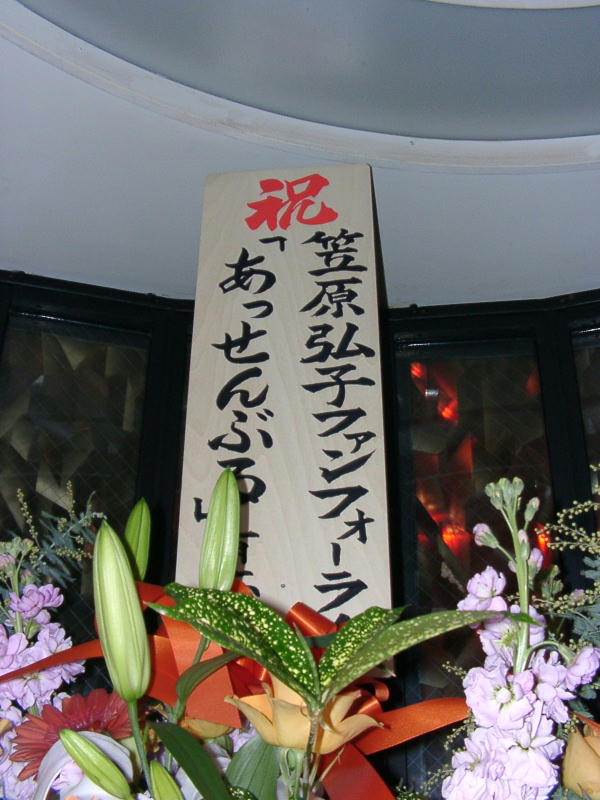 祝
笠原弘子ファンフォーラ
「あっせんぶる」